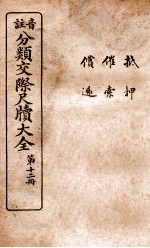 抵押
催索
償
音註
分類交際尺牘大全
第十二冊